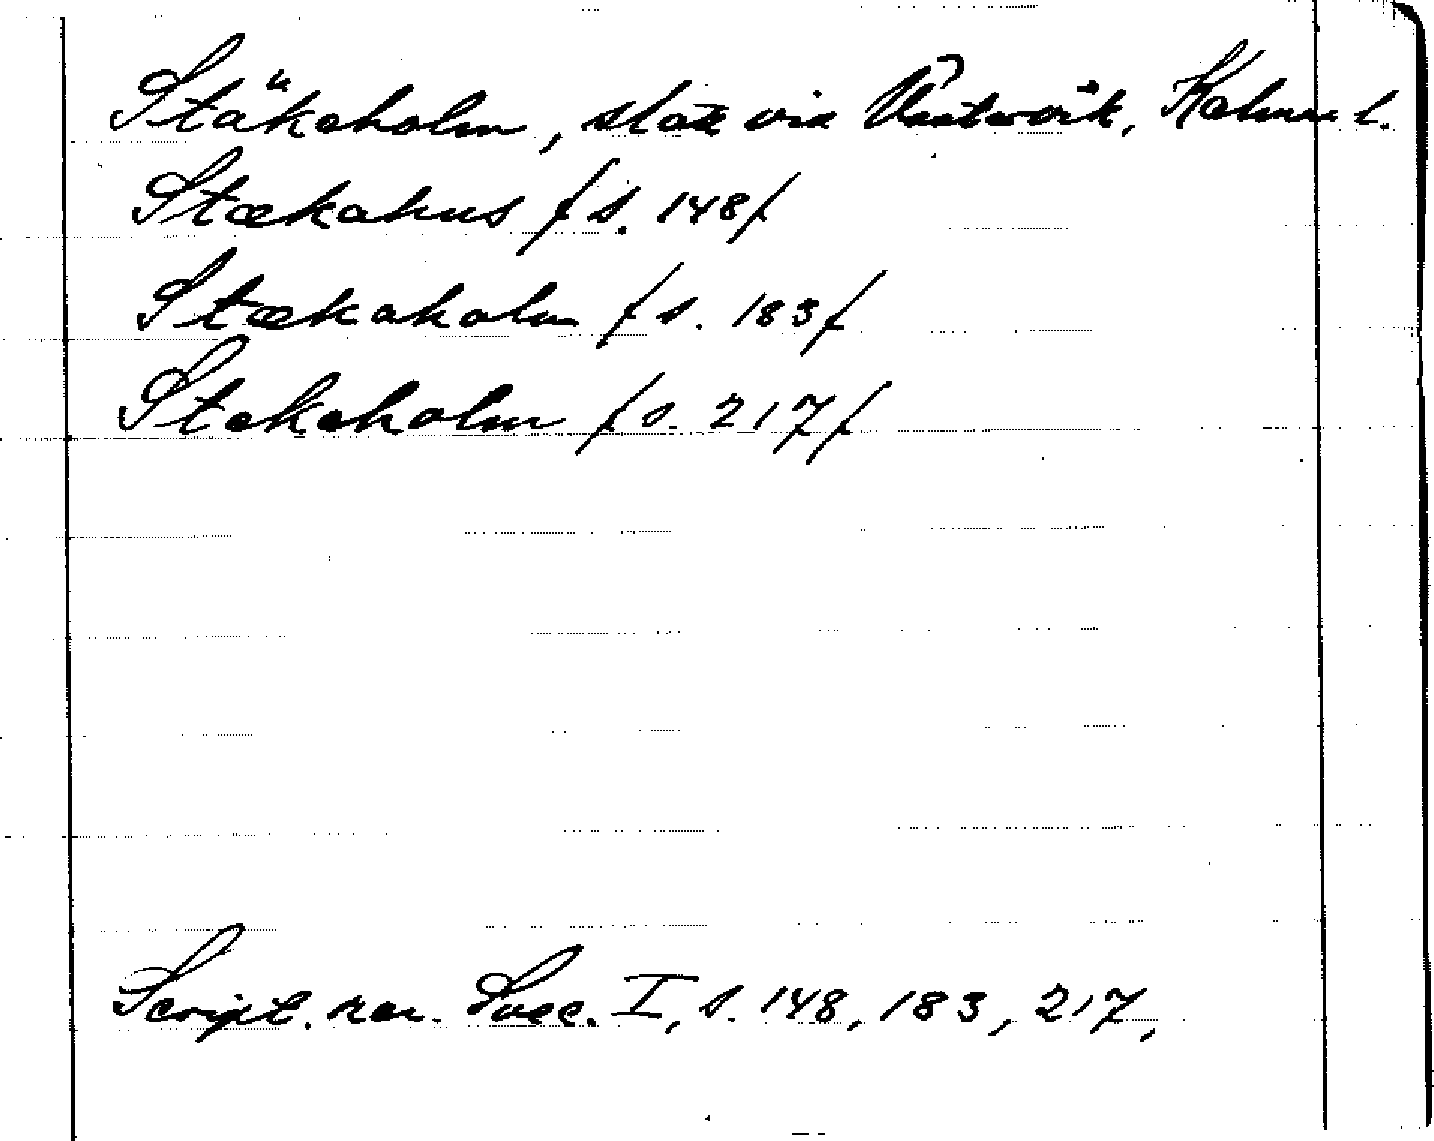 Stäkeholm, slott vid Västervik, Kalmar l.
Stækahus /s. 148/
Stækaholm /s. 183/
Stekeholm /s. 217/
Script. rer. Svec. I, s. 148, 183, 217,